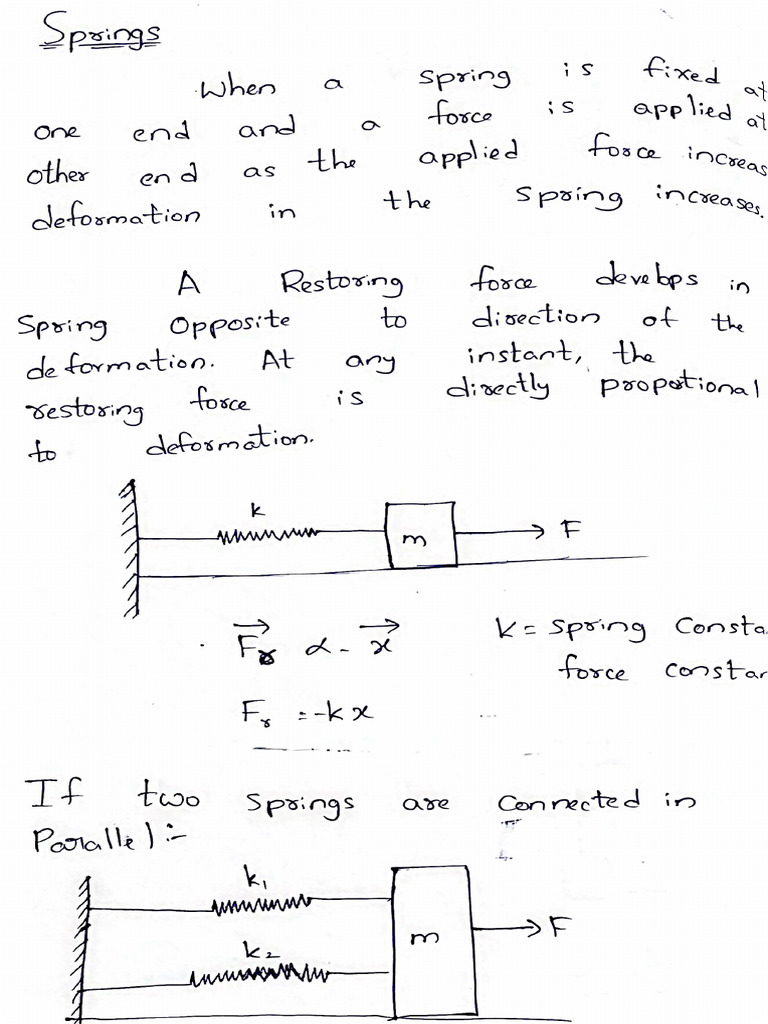 Springs
When a spring is fixed at
one end and a force is applied at
other end as the applied force increas
deformation in the spring increases.
A Restoring force develops in
Spring Opposite to direction of the
deformation. At any instant, the
restoring force is directly propotional
to deformation.
k
m
F
Fr α - x
k = spring Consta
force constan
Fr = -kx
If two springs are connected in
Parallel :-
k1
k2
m
F